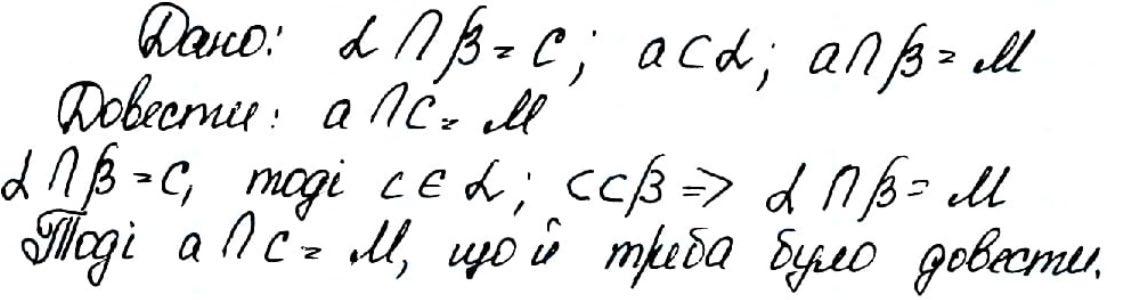 Дано: α ∩ β = C; a ⊂ α; a ∩ β = M
Довести: a ∩ C = M
α ∩ β = C, тоді c ∈ α; c ⊂ β => α ∩ β = M
Тоді a ∩ C = M, що й треба було довести.